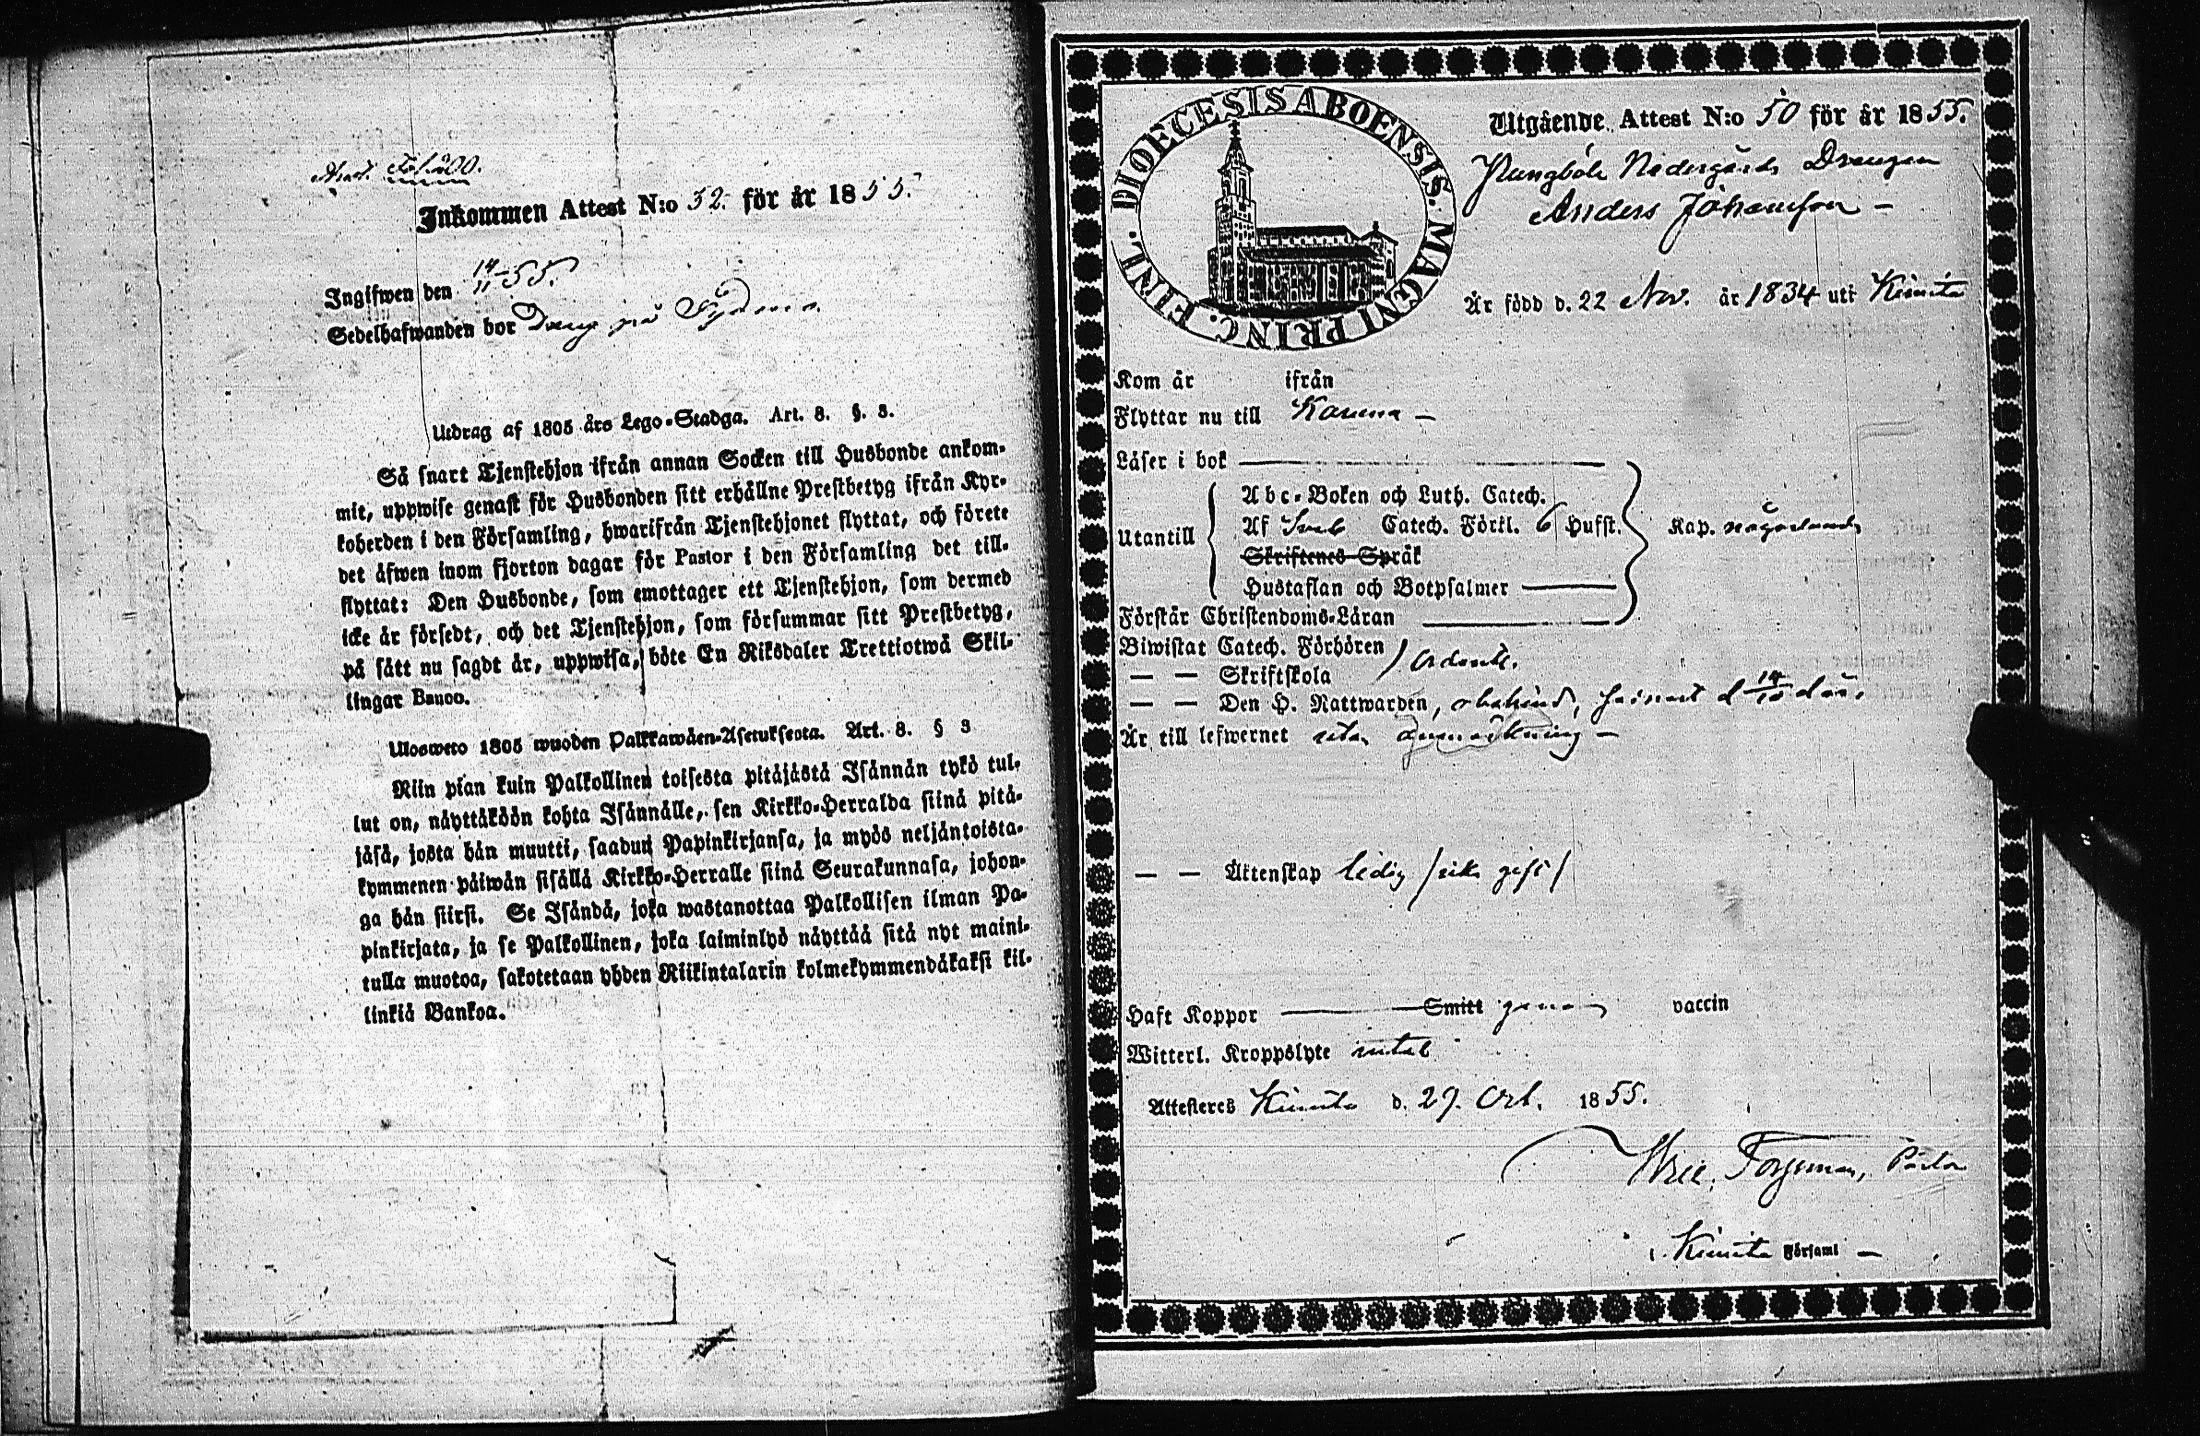 Inkommen Attest N:o 52. för år 1855.
Ingifwen den 14/11 55.
Sedelhafwanden bor Dreng på
Utdrag af 1805 års Lego-Stadga. Art. 8. §. 3.
Så snart Tjenstehjon ifrån annan Socken till Husbonde ankom-
mit, uppwise genast för Husbonden sitt erhållne Prestbetyg ifrån Kyr-
koherden i den Församling, hwarifrån Tjenstehjonet flyttat, och förete
det äfwen inom fjorton dagar för Pastor i den Församling det till-
flyttat: Den Husbonde, som emottager ett Tjenstehjon, som dermed
icke är försedt, och det Tjenstehjon, som försummar sitt Prestbetyg,
på sätt nu sagdt är, uppwisa, böte En Riksdaler Trettiotwå Skil-
lingar Banco.
Ulosweto 1805 wuoden Palkkawäen-Asetuksesta. Art. 8. § 3
Niin pian kuin Palkollinen toisesta pitäjästä Isännän tykö tul-
lut on, näyttäköön kohta Isännälle, sen Kirkko-Herralda siinä pitä-
jäsä, josta hän muutti, saadun Papinkirjansa, ja myös neljäntoista-
kymmenen päiwän sisällä Kirkko-Herralle siinä Seurakunnasa, johon-
ga hän siirsi. Se Isändä, joka wastanottaa Palkollisen ilman Pa-
pinkirjata, ja se Palkollinen, joka laiminlyö näyttää sitä nyt maini-
tulla muotoa, sakotetaan yhden Riikintalarin kolmekymmendäkaksi kil-
linkiä Bankoa.
DIOECESIS ABOENSIS. MAGNI PRINC. FINL.
Utgående Attest N:o 50 för år 1855.
Nedergårds Drengen
Anders Johansson –
Är född d. 22 Nov. år 1834 uti Kimito
Kom år ifrån
Flyttar nu till Karuna –
Läser i bok
Utantill
Abc-Boken och Luth. Catech.
Af Sveb Catech. Förkl. 6 Hufst.
Skriftenes Språk
Hustaflan och Botpsalmer
Kap. någorlunda
Förstår Christendoms-Läran
Biwistat Catech. Förhören
— — Skriftskola
— — Den H. Nattwarden, obehind, senast d 14/10 d. år.
Är till lefwernet utan anmärkning –
— — Ättenskap ledig /icke gift/
Haft Koppor Smitt genom vaccin
Witterl. Kroppslyte intet
Attesteres Kimito d. 29. Oct. 1855.
Pastor
i Kimito Församl –